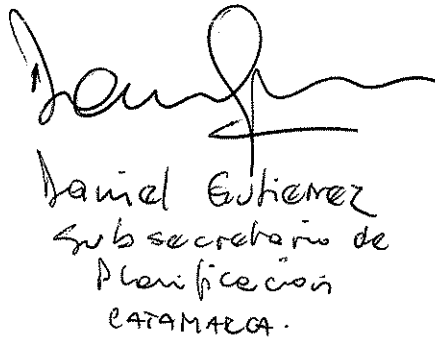 Daniel Gutierrez
Subsecretario de
Planificación
CATAMARCA.